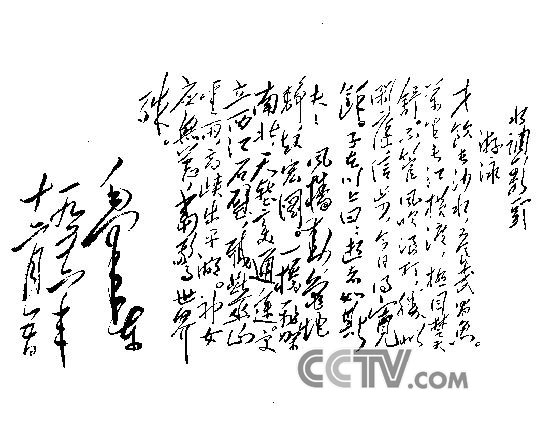 水调歌头
游泳
才饮长沙水,又食武昌鱼。
万里长江横渡,极目楚天
舒。不管风吹浪打,胜似
闲庭信步,今日得宽
馀。子在川上曰:逝者如斯
夫! 风樯动,龟蛇
静,起宏图。一桥飞架
南北,天堑变通途。更
立西江石壁,截断巫山
云雨,高峡出平湖。神女
应無恙,当惊世界
殊。
毛泽东
一九五六年
十二月五日
CCTV.com